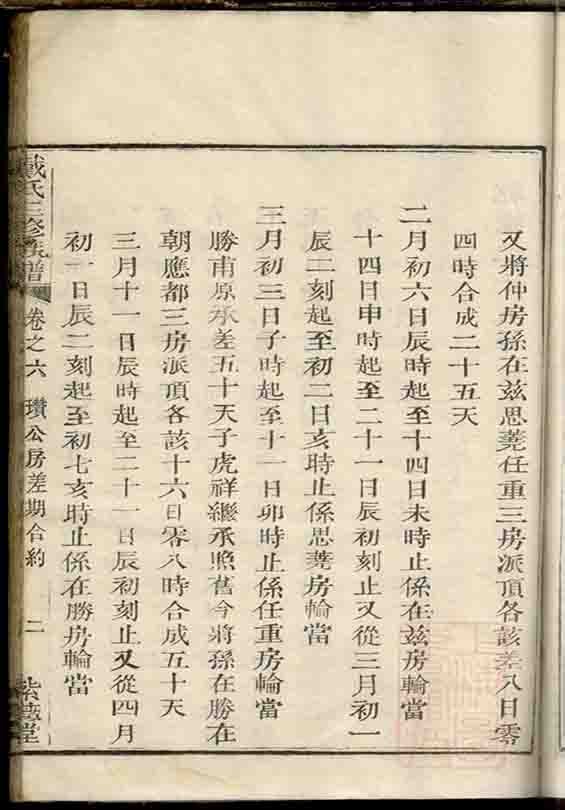 又將仲房孫在茲思薨任重三房派頂各該差八日零
四時合成二十五天
二月初六日辰時起至十四日未時止係在茲房輪當
十四日申時起至二十一日辰初刻止又從三月初一
辰二刻起至初二日亥時止係思薨房輪當
三月初三日子時起至十一日卯時止係任重房輪當
勝甫原承差五十天子虎祥繼承照舊今將孫在勝在
朝應都三房派頂各該十六日零八時合成五十天
三月十一日辰時起至二十一日辰初刻止又從四月
初一日辰二刻起至初七亥時止係在勝房輪當
戴氏三修族譜 卷之六 瓚公房差期合約 二 紫蔭堂